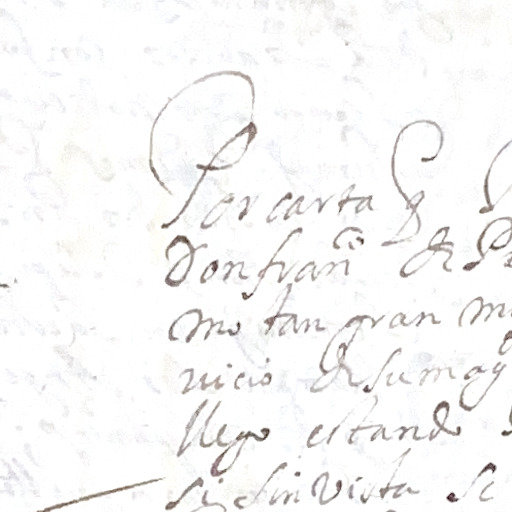 Por carta q V
Don fran.co de P
mo tan gran m
vicio de su mag
llego estando
si sin vista se